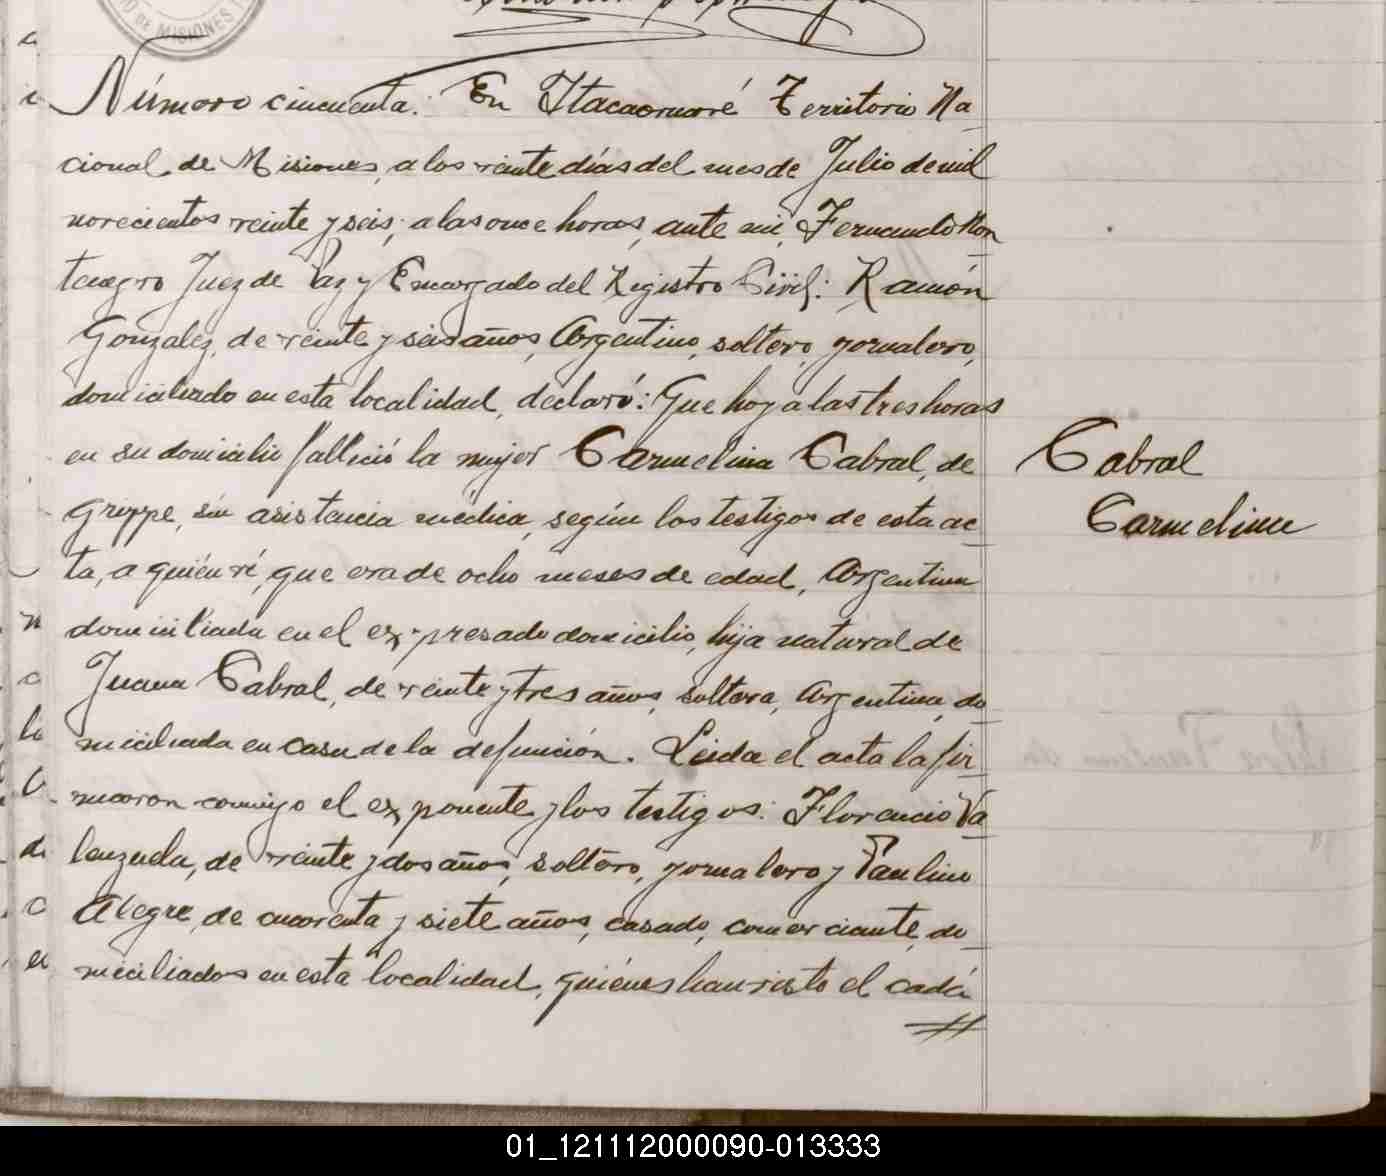 DE MISIONES
Número cincuenta: En Itacaruaré Territorio Na
cional de Misiones, a los veinte días del mes de Julio de mil
novecientos veinte y seis, a las once horas, ante mi, Fernando Mon
tenegro Juez de Paz y Encargado del Registro Civil: Ramón
Gonzalez, de veinte y seis años, Argentino, soltero, jornalero,
domiciliado en esta localidad, declaró: Que hoy a las tres horas
en su domicilio falleció la mujer Carmelina Cabral, de
grippe, sin asistencia médica, según los testigos de esta ac-
ta, a quién ví, que era de ocho meses de edad, Argentina
domiciliada en el expresado domicilio, hija natural de
Juana Cabral, de veinte y tres años, soltera, Argentina, do-
miciliada en casa de la defunción. Leida el acta la fir-
maron conmigo el exponente y los testigos: Florencio Va
lenzuela, de veinte y dos años, soltero, jornalero y Paulino
Alegre, de cuarenta y siete años, casado, comerciante, do-
miciliados en esta localidad, quiénes han visto el cadá
//
Cabral
Carmelina
01_121112000090-013333